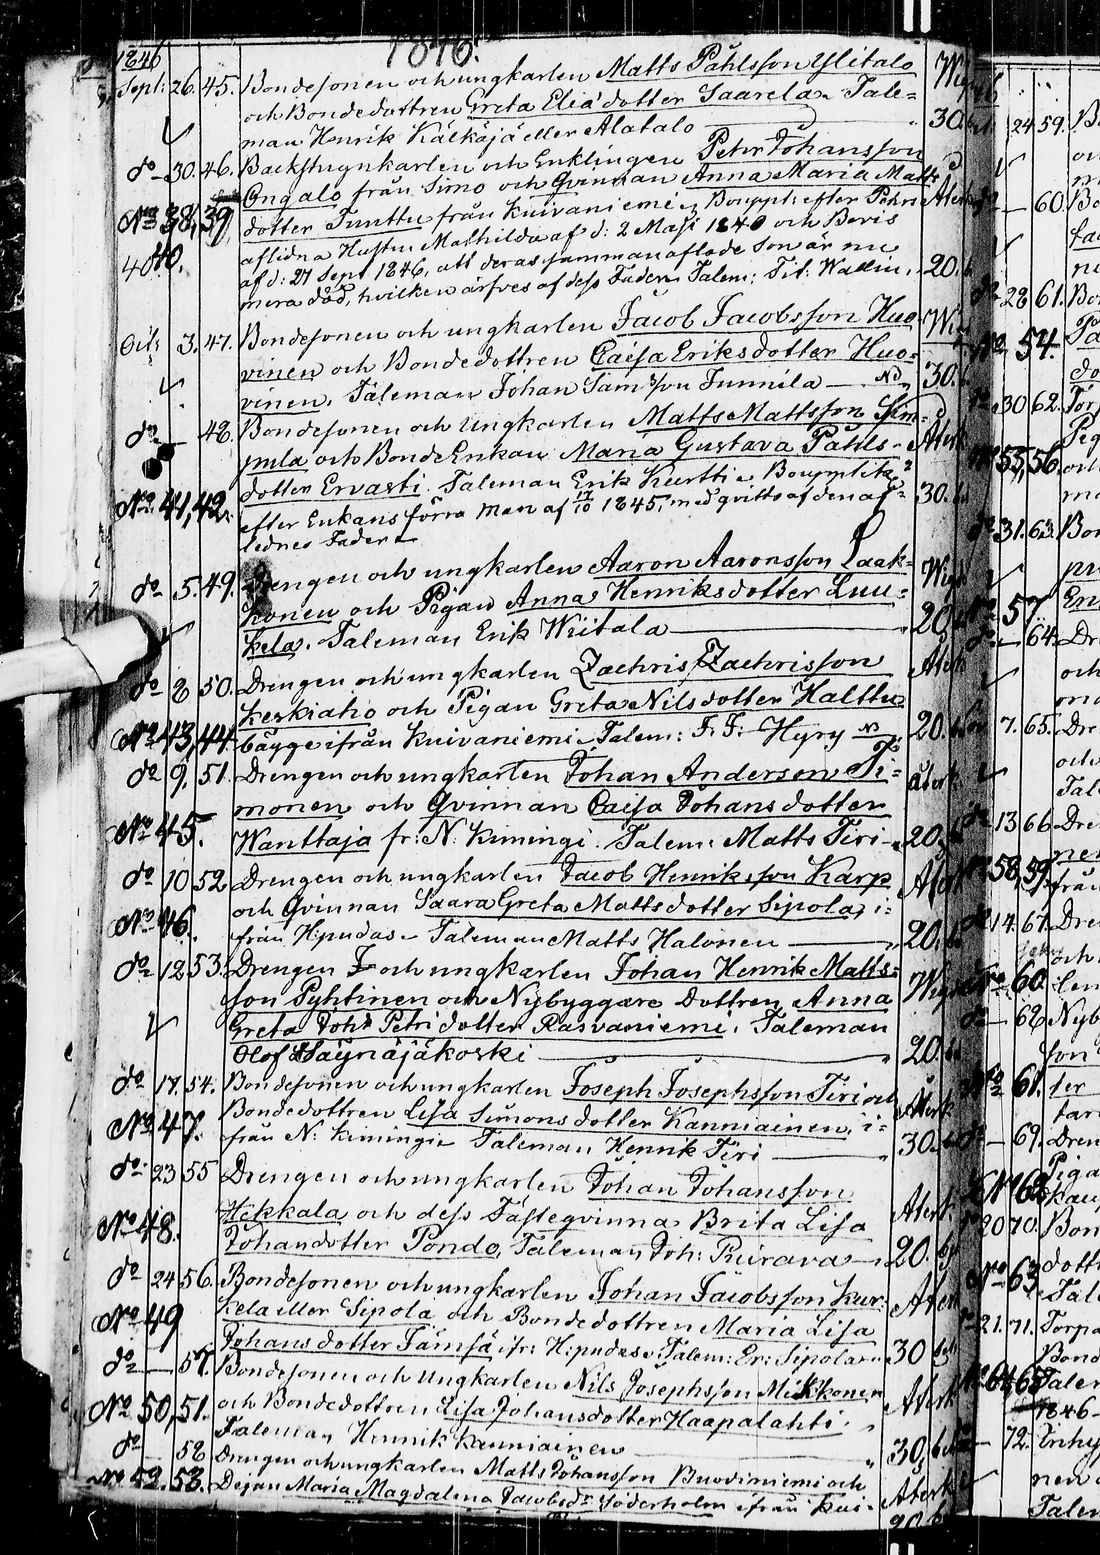 1846.
1846
Sept: 26. 45. Bondesonen och ungkarlen Matts Påhlsson Ylitalo
och Bondedottren Greta Eliædotter Saarela. Tale=
man Henrik Kälkäjä eller Alatalo 30.
do 30. 46. Backstugukarlen och Enklingen Petter Johansson
Ongalo från Simo och Qvinnan Anna Maria Matts
No 38, 39, dotter Tunttu från Kuivaniemi, Bouppt: efter Petters
40. aflidna Hustru Mathilda af d: 2 Maji 1840 och Bevis
af d: 27 Sept 1846, att deras sammanaflade Son är nu
mera död, hvilken ärfves af dess Fader. Talem: Tit: Wallin. 20.
Oct: 3. 47. Bondesonen och ungkarlen Jacob Jacobsson Huo=
vinen och Bondedottren Caisa Eriksdotter Huo=
vinen. Taleman Johan Samsson Junnila 30.
do — 48. Bondesonen och Ungkarlen Matts Mattsson
och BondeEnkan Maria Gustava Påhls=
dotter Ervasti. Taleman Erik Kurtti. Bouppteckn
No 41, 42. efter Enkans förra Man af 17/10 1845, med qvitto af den af=
lednes Fader 30.
do 5. 49. Drengen och ungkarlen Aaron Aaronsson Laak=
konen och Pigan Anna Henriksdotter Luu=
kela. Taleman Erik Wiitala 20.
do 8 50. Drengen och ungkarlen Zachris Zachrisson
Keskiaho och Pigan Greta Nilsdotter Halttu
No 43, 44. bägge ifrån Kuivaniemi. Talem: F. F: Hyry 20.
do 9. 51. Drengen och ungkarlen Johan Anderson Ti=
monen och Qvinnan Caisa Johansdotter
No 45. Wanttaja fr: N. Kimingi. Talem: Matts Tiri 20.
do 10 52. Drengen och ungkarlen Jacob Henriksson Karp
och Qvinnan Saara Greta Mattsdotter Sipola, i=
No 46. från H:pudas. Taleman Matts Halonen 20.
do 12 53. Drengen och ungkarlen Johan Henrik Matts=
son Pyhtinen och Nybyggare Dottren Anna
Greta Joh: Petri dotter Rasvaniemi. Taleman
Olof Säynäjäkoski 20.
do 17. 54. Bondesonen och ungkarlen Joseph Josephsson Tiri och
No 47. Bondedottren Lisa Simonsdotter Kanniainen, i=
från N: Kimingi. Taleman Henrik Tiri 30.
do: 23 55 Drengen och ungkarlen Johan Johansson
No 48. Hekkala och dess Fästeqvinna Brita Lisa
Johansdotter Pondo, Taleman Joh: Ruirava 20.
do 24 56. Bondesonen och ungkarlen Johan Jacobsson Kur=
No 49 kela eller Sipola och Bondedottren Maria Lisa
Johansdotter Jämsä ifr: H:pudas. Talem: Er: Sipola 30
do — 57. Bondesonen och Ungkarlen Nils Josephsson Mikkonen
No 50, 51. och Bondedottren Lisa Johansdotter Haapalahti.
Taleman Henrik Kanniainen 30.
do — 58 Drengen och ungkarlen Matts Johansson och
No 52. 53. Dejan Maria Magdalena Jacobsdr Söderholm ifrån Kui=
24 59.
60. Bo
28 61. Bon
No 54.
30 62. Torp
Pig
55, 56.
31. 63. Bon
57.
64. Dre
och
7. 65. Dre
och
Tale
13 66. Dre
58, 59. från
14. 67. Dren
och
60.
62. Nyb
son
61. ter
69. Dren
Piga
62.
20 70. Bon
dott
No 63. Tale
21. 71. Torpa
Bond
64 65 Taler
1846
72.
Talem